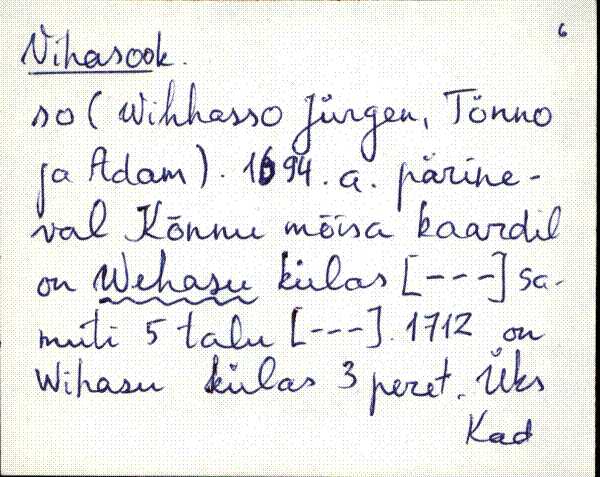 6
Vihasook.
so (Wihhasso Jürgen, Tõnno
ja Adam). 1694. a. pärine-
val Kõnnu mõisa kaardil
on Wehasu külas [---] sa-
muti 5 talu [---]. 1712 on
Wihasu külas 3 peret. Üks
Kad